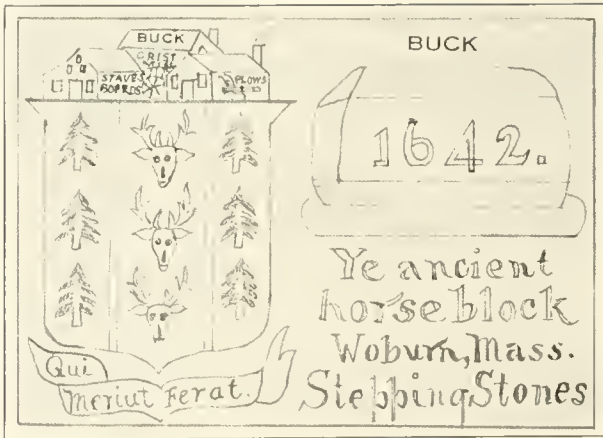 BUCK
GRIST
STAVES
BOARDS
PLOWS
Qui
Meriut Ferat.
BUCK
1642.
Ye ancient
horse block
Woburn, Mass.
Stepping Stones